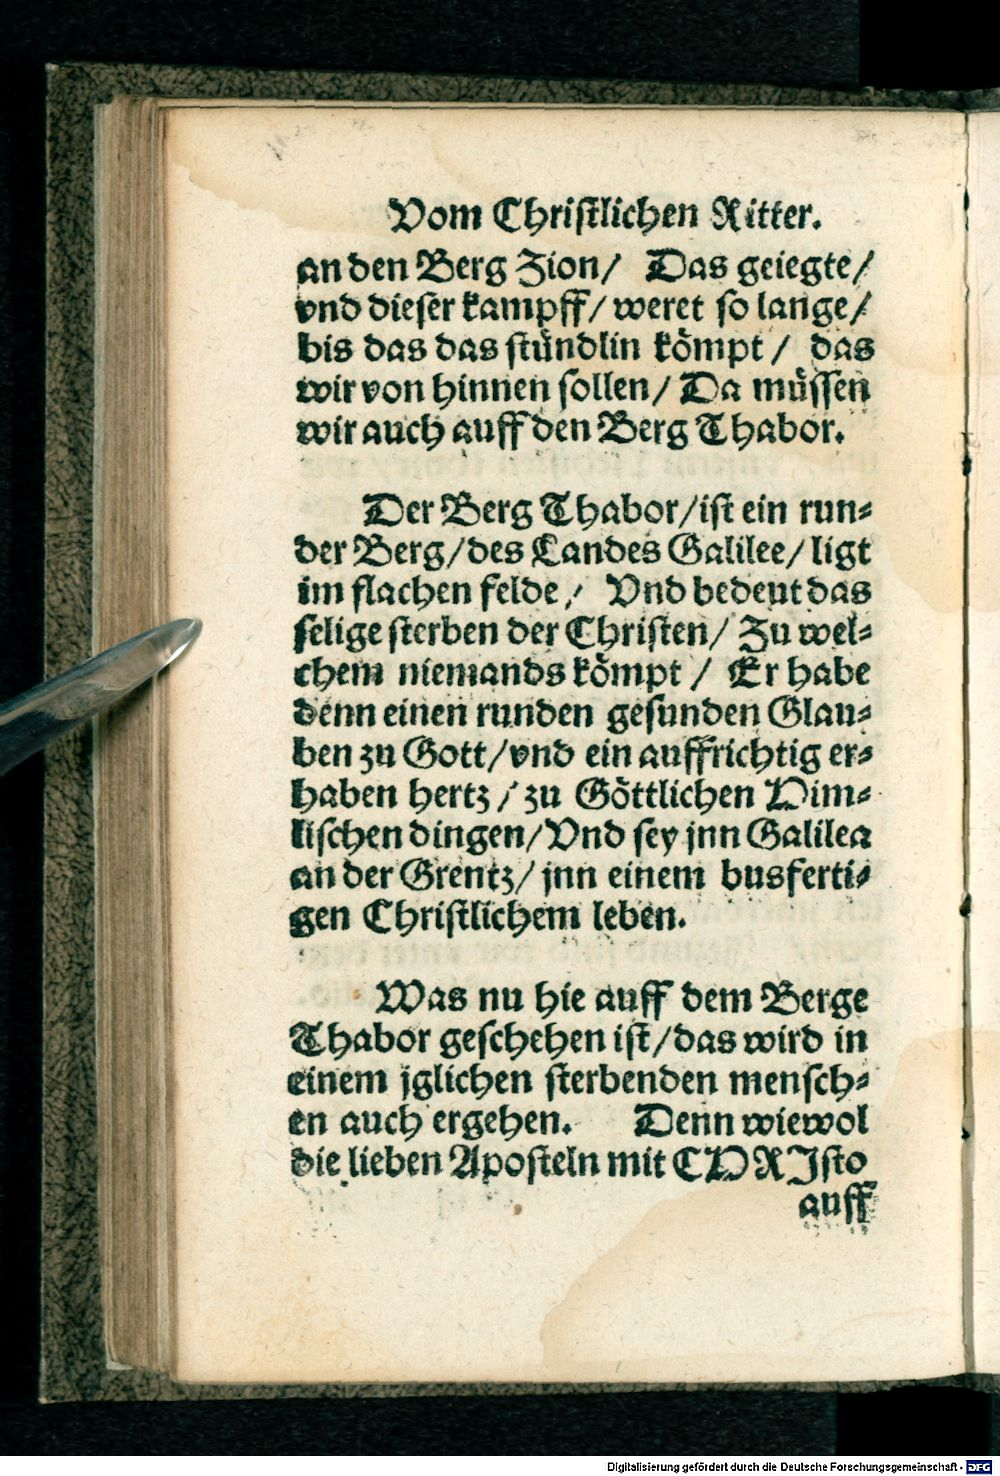 Vom Christlichen Ritter.
an den Berg Zion/ Das geiegte/
vnd dieser kampff/ weret so lange/
bis das das stündlin kömpt/ das
wir von hinnen sollen/ Da müssen
wir auch auff den Berg Thabor.
Der Berg Thabor/ist ein run⸗
der Berg/des Landes Galilee/ligt
im flachen felde/ Vnd bedeut das
selige sterben der Christen/ Zu wel⸗
chem niemands kömpt/ Er habe
denn einen runden gesunden Glau⸗
ben zu Gott/vnd ein auffrichtig er⸗
haben hertz/ zu Göttlichen Him⸗
lischen dingen/Vnd sey jnn Galilea
an der Grentz/ jnn einem busferti⸗
gen Christlichem leben.
Was nu hie auff dem Berge
Thabor geschehen ist/das wird in
einem jglichen sterbenden mensch⸗
en auch ergehen. Denn wiewol
die lieben Aposteln mit CHRJsto
auff
Digitalisierung gefördert durch die Deutsche Forschungsgemeinschaft - DFG